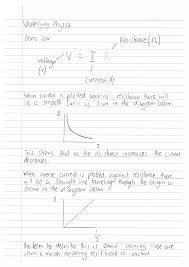 Underlying Physics
Ohms law
Resistance (Ω)
V = I R
voltage
(v)
(current A)
When current is plotted against resistance there will
be a smooth curve as shown in the diagram below
This shows that as the resistance increases the current
decreases.
When inverse current is plotted against resistance there
will be a straight line travelling through the origin as
shown in the diagram below
The term to describe this is ohmic meaning these are
ohmic meaning resistance is constant